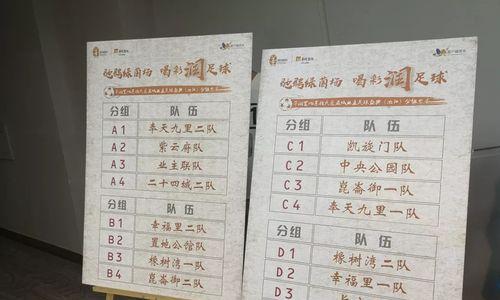 驰骋绿茵场 喝彩润足球
分组 队伍
A1 奉天九里二队
A2 紫云府队
A3 业主联队
A4 二十四城二队
分组 队伍
B1 幸福里二队
B2 置地公馆队
B3 橡树湾一队
B4 崑崙御二队
驰骋绿茵场 喝彩润足球
分组 队伍
C1 凯旋门队
C2 中央公园队
C3 崑崙御一队
C4 奉天九里一队
分组 队伍
D1 橡树湾二队
D2 幸福里一队
D3